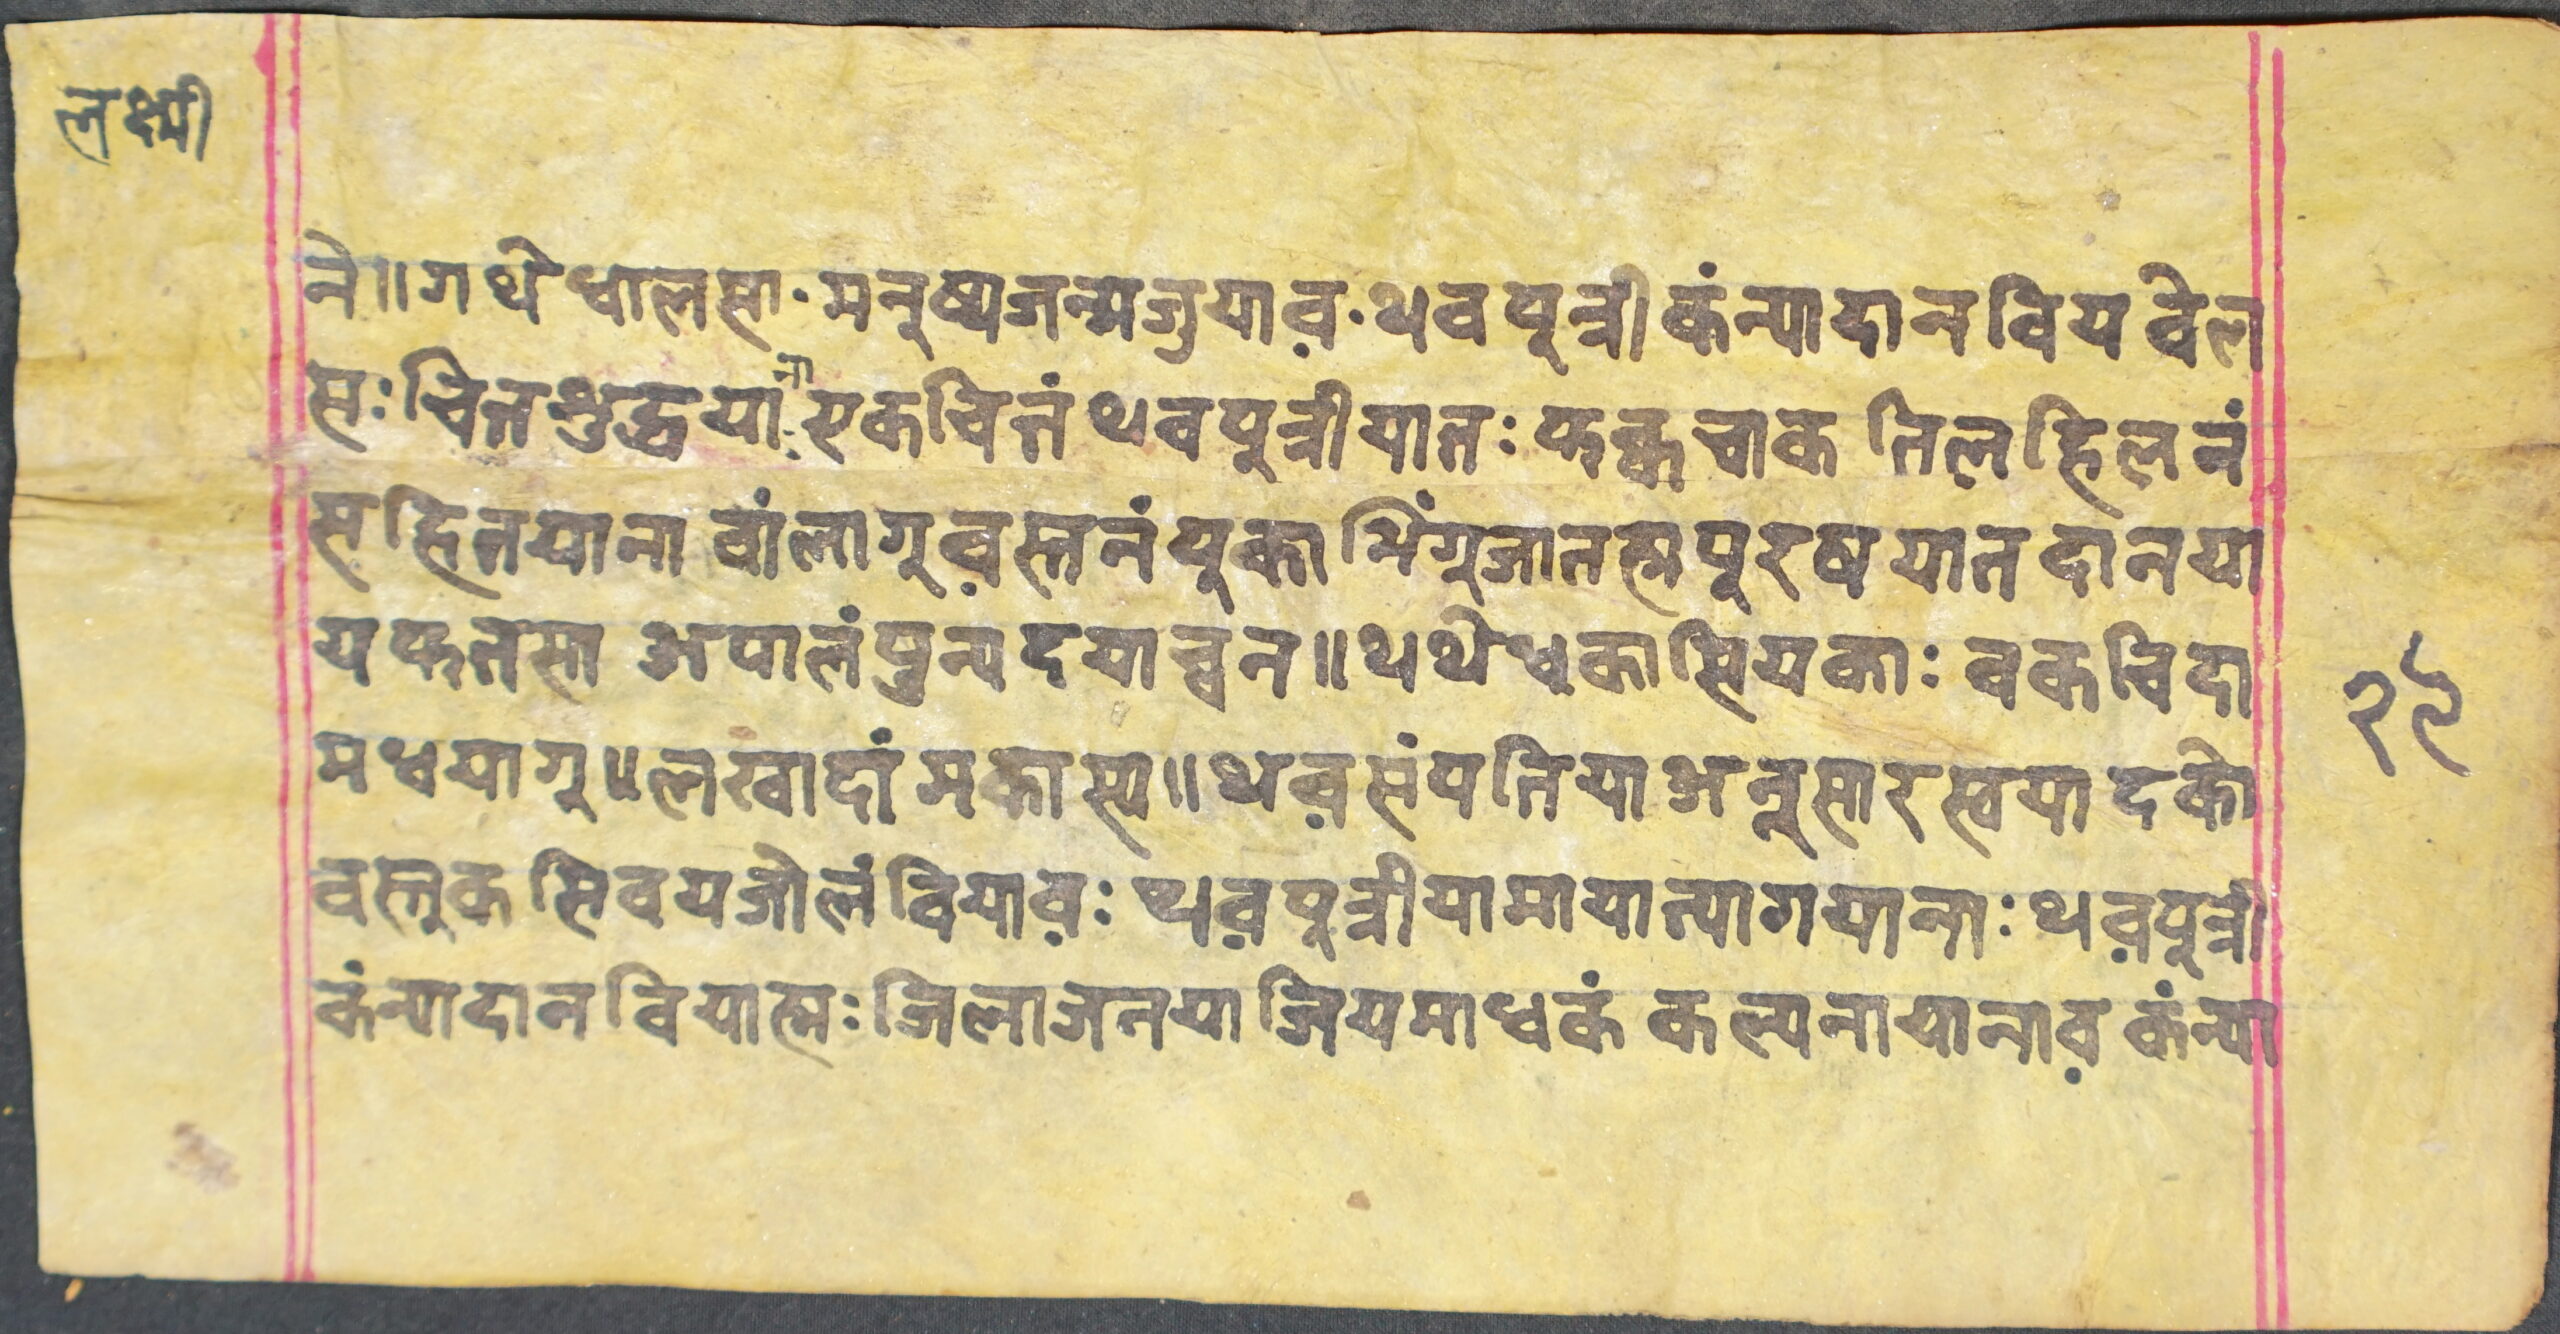 लक्ष्मी
ने॥गथे धालसा·मनुष्यजन्मजुयाव़·थवपूत्री कंन्यादानविय वेल
सः चित्तशुद्धयाना एकचित्तं थवपुत्रीयातः फक्व चाक तिलहिलनं
सहितयाना वांलागू व़स्तनं पुका भिंगूजातह्म पूरषयात दानया
य फतसा अपालं पुन्य दयाच्वन॥थथेधका सियकाः वकविदा
मधयागू॥लखादां मकास्य॥थव़संपतिया अनूसारस्वया दको
वस्तुक सिवय जोलं वियाव़ः थव़पूत्रीया माया त्यागयानाः थव़पूत्री
कंन्यादान वियाह्मः जिलाजनया जियमाधकं कल्पनायानाव़ कंन्या
२९